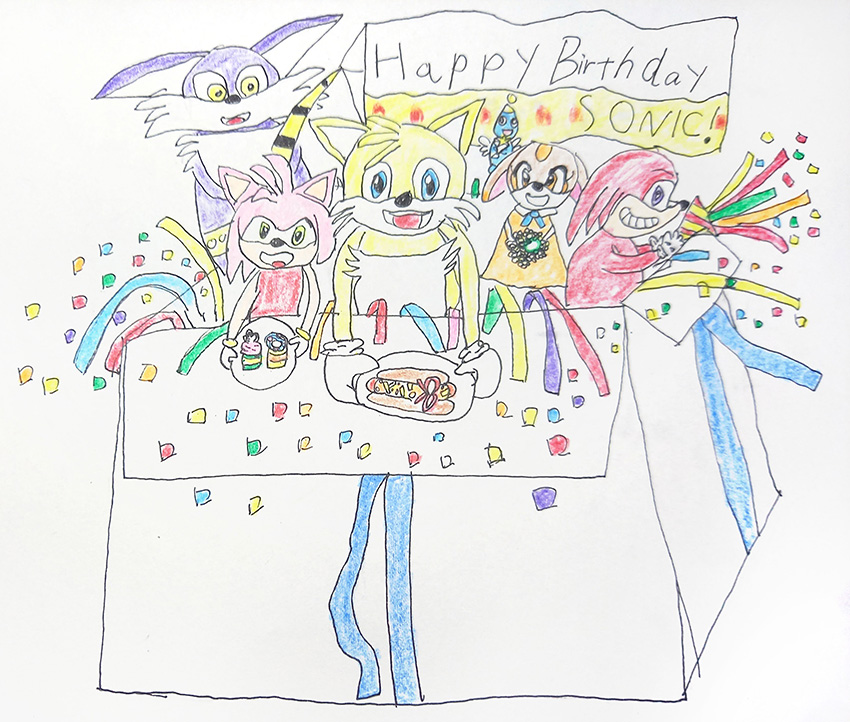 Happy Birthday
SONIC!